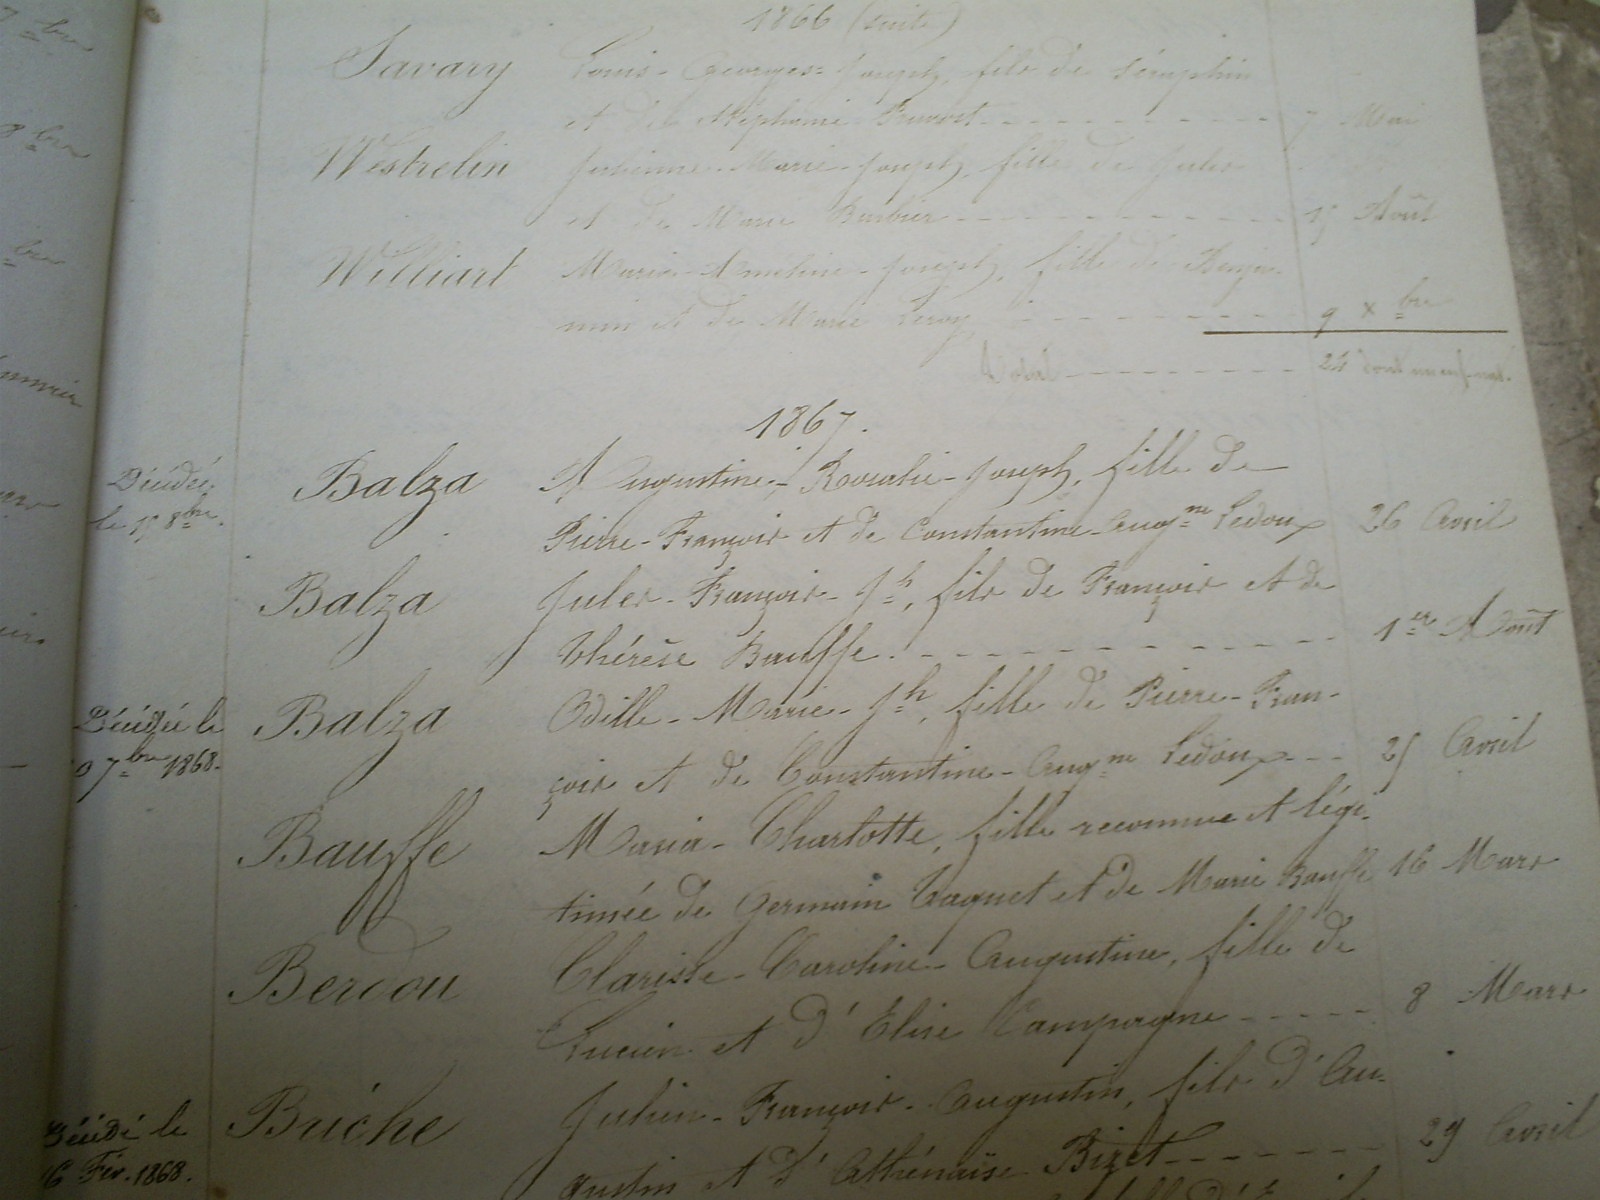 1866 (suite)
Savary Louis-Georges-Joseph, fils de Séraphin
et de Stéphanie Pruvost 7 Mai
Westrelin Julienne-Marie-Joseph, fille de Jules
et de Marie Barbier 15 Août
Williart Maria-Joseph, fille de Benja-
min et de Marie Leroy 9 Xbre
Total 24 dont un enf. nat.
1867.
Décédée Balza Augustine-Rosalie-Joseph, fille de
le 15 8bre. Pierre-François et de Constantine-Augne Ledoux 26 Avril
Balza Jules-François-Jh, fils de François et de
Thérèse Bauffe 1er Août
Décédée le Balza Odille-Marie-Jh, fille de Pierre-Fran-
7bre 1868. çois et de Constantine-Augne Ledoux 25 Avril
Bauffe Maria-Charlotte, fille reconnue et légi-
timée de Germain Vaquet et de Marie Bauffe 16 Mars
Berdou Clarisse-Caroline-Augustine, fille de
Lucien et d'Elise Campagne 8 Mars
Décédé le Briche Julien-François-Augustin, fils d'Au-
16 Fév. 1868. gustin et d'Athénaïse Bizet 29 Avril